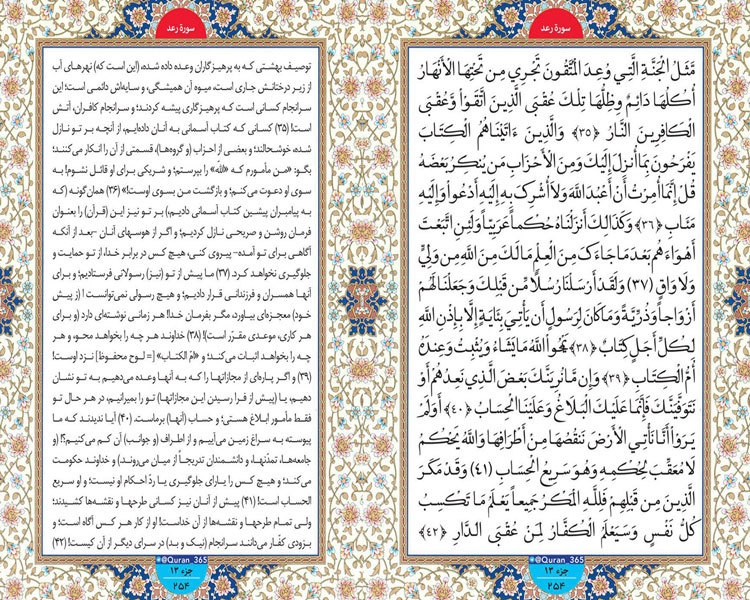 سورهٔ رعد
مَّثَلُ الْجَنَّةِ الَّتِي وُعِدَ الْمُتَّقُونَ تَجْرِي مِن تَحْتِهَا الْأَنْهَارُ
أُكُلُهَا دَائِمٌ وَظِلُّهَا تِلْكَ عُقْبَى الَّذِينَ اتَّقَوْا وَّعُقْبَى
الْكَافِرِينَ النَّارُ ﴿۳۵﴾ وَالَّذِينَ ءَاتَيْنَاهُمُ الْكِتَابَ
يَفْرَحُونَ بِمَا أُنزِلَ إِلَيْكَ وَمِنَ الْأَحْزَابِ مَن يُنكِرُ بَعْضَهُ
قُلْ إِنَّمَا أُمِرْتُ أَنْ أَعْبُدَ اللَّهَ وَلَا أُشْرِكَ بِهِ إِلَيْهِ أَدْعُوا وَإِلَيْهِ
مَئَابِ ﴿۳۶﴾ وَكَذَالِكَ أَنزَلْنَاهُ حُكْماً عَرَبِيّاً وَلَئِنِ اتَّبَعْتَ
أَهْوَاءَهُم بَعْدَ مَا جَاءَكَ مِنَ الْعِلْمِ مَا لَكَ مِنَ اللَّهِ مِن وَلِيٍّ
وَلَا وَاقٍ ﴿۳۷﴾ وَلَقَدْ أَرْسَلْنَا رُسُلاً مِّن قَبْلِكَ وَجَعَلْنَا لَهُمْ
أَزْوَاجاً وَذُرِّيَّةً وَمَا كَانَ لِرَسُولٍ أَن يَأْتِيَ بِئَايَةٍ إِلَّا بِإِذْنِ اللَّهِ
لِكُلِّ أَجَلٍ كِتَابٌ ﴿۳۸﴾ يَمْحُوا اللَّهُ مَا يَشَاءُ وَيُثْبِتُ وَعِندَهُ
أُمُّ الْكِتَابِ ﴿۳۹﴾ وَإِن مَّا نُرِيَنَّكَ بَعْضَ الَّذِي نَعِدُهُمْ أَوْ
نَتَوَفَّيَنَّكَ فَإِنَّمَا عَلَيْكَ الْبَلَاغُ وَعَلَيْنَا الْحِسَابُ ﴿۴۰﴾ أَوَلَمْ
يَرَوْا أَنَّا نَأْتِي الْأَرْضَ نَنقُصُهَا مِنْ أَطْرَافِهَا وَاللَّهُ يَحْكُمُ
لَا مُعَقِّبَ لِحُكْمِهِ وَهُوَ سَرِيعُ الْحِسَابِ ﴿۴۱﴾ وَقَدْ مَكَرَ
الَّذِينَ مِن قَبْلِهِمْ فَلِلَّهِ الْمَكْرُ جَمِيعاً يَعْلَمُ مَا تَكْسِبُ
كُلُّ نَفْسٍ وَسَيَعْلَمُ الْكُفَّارُ لِمَنْ عُقْبَى الدَّارِ ﴿۴۲﴾
@Quran_365
جزء ۱۳
۲۵۴
سورهٔ رعد
توصیف بهشتی که به پرهیزگاران وعده داده شده، (این است که) نهرهای آب
از زیر درختانش جاری است، میوه آن همیشگی، و سایه‌اش دائمی است؛ این
سرانجام کسانی است که پرهیزگاری پیشه کردند؛ و سرانجام کافران، آتش
است! (۳۵) کسانی که کتاب آسمانی به آنان داده‌ایم، از آنچه بر تو نازل
شده، خوشحالند؛ و بعضی از احزاب (و گروه‌ها)، قسمتی از آن را انکار می‌کنند؛
بگو: «من مأمورم که «الله» را بپرستم؛ و شریکی برای او قائل نشوم! به
سوی او دعوت می‌کنم؛ و بازگشت من بسوی اوست!» (۳۶) همان‌گونه (که
به پیامبران پیشین کتاب آسمانی دادیم،) بر تو نیز این (قرآن) را بعنوان
فرمان روشن و صریحی نازل کردیم؛ و اگر از هوسهای آنان -بعد از آنکه
آگاهی برای تو آمده- پیروی کنی، هیچ کس در برابر خدا، از تو حمایت و
جلوگیری نخواهد کرد. (۳۷) ما پیش از تو (نیز) رسولانی فرستادیم؛ و برای
آنها همسران و فرزندانی قرار دادیم؛ و هیچ رسولی نمی‌توانست (از پیش
خود) معجزه‌ای بیاورد، مگر بفرمان خدا! هر زمانی نوشته‌ای دارد (و برای
هر کاری، موعدی مقرّر است)! (۳۸) خداوند هر چه را بخواهد محو، و هر
چه را بخواهد اثبات می‌کند؛ و «امّ الکتاب» [= لوح محفوظ] نزد اوست!
(۳۹) و اگر پاره‌ای از مجازاتها را که به آنها وعده می‌دهیم به تو نشان
دهیم، یا (پیش از فرا رسیدن این مجازاتها) تو را بمیرانیم، در هر حال تو
فقط مأمور ابلاغ هستی؛ و حساب (آنها) برماست. (۴۰) آیا ندیدند که ما
پیوسته به سراغ زمین می‌آییم و از اطراف (و جوانب) آن کم می‌کنیم؟! (و
جامعه‌ها، تمدّنها، و دانشمندان تدریجاً از میان می‌روند.) و خداوند حکومت
می‌کند؛ و هیچ کس را یارای جلوگیری یا ردّ احکام او نیست؛ و او سریع
الحساب است! (۴۱) پیش از آنان نیز کسانی طرحها و نقشه‌ها کشیدند؛
ولی تمام طرحها و نقشه‌ها از آن خداست! او از کار هر کس آگاه است؛ و
بزودی کفّار می‌دانند سرانجام (نیک و بد) در سرای دیگر از آن کیست! (۴۲)
@Quran_365
جزء ۱۳
۲۵۴